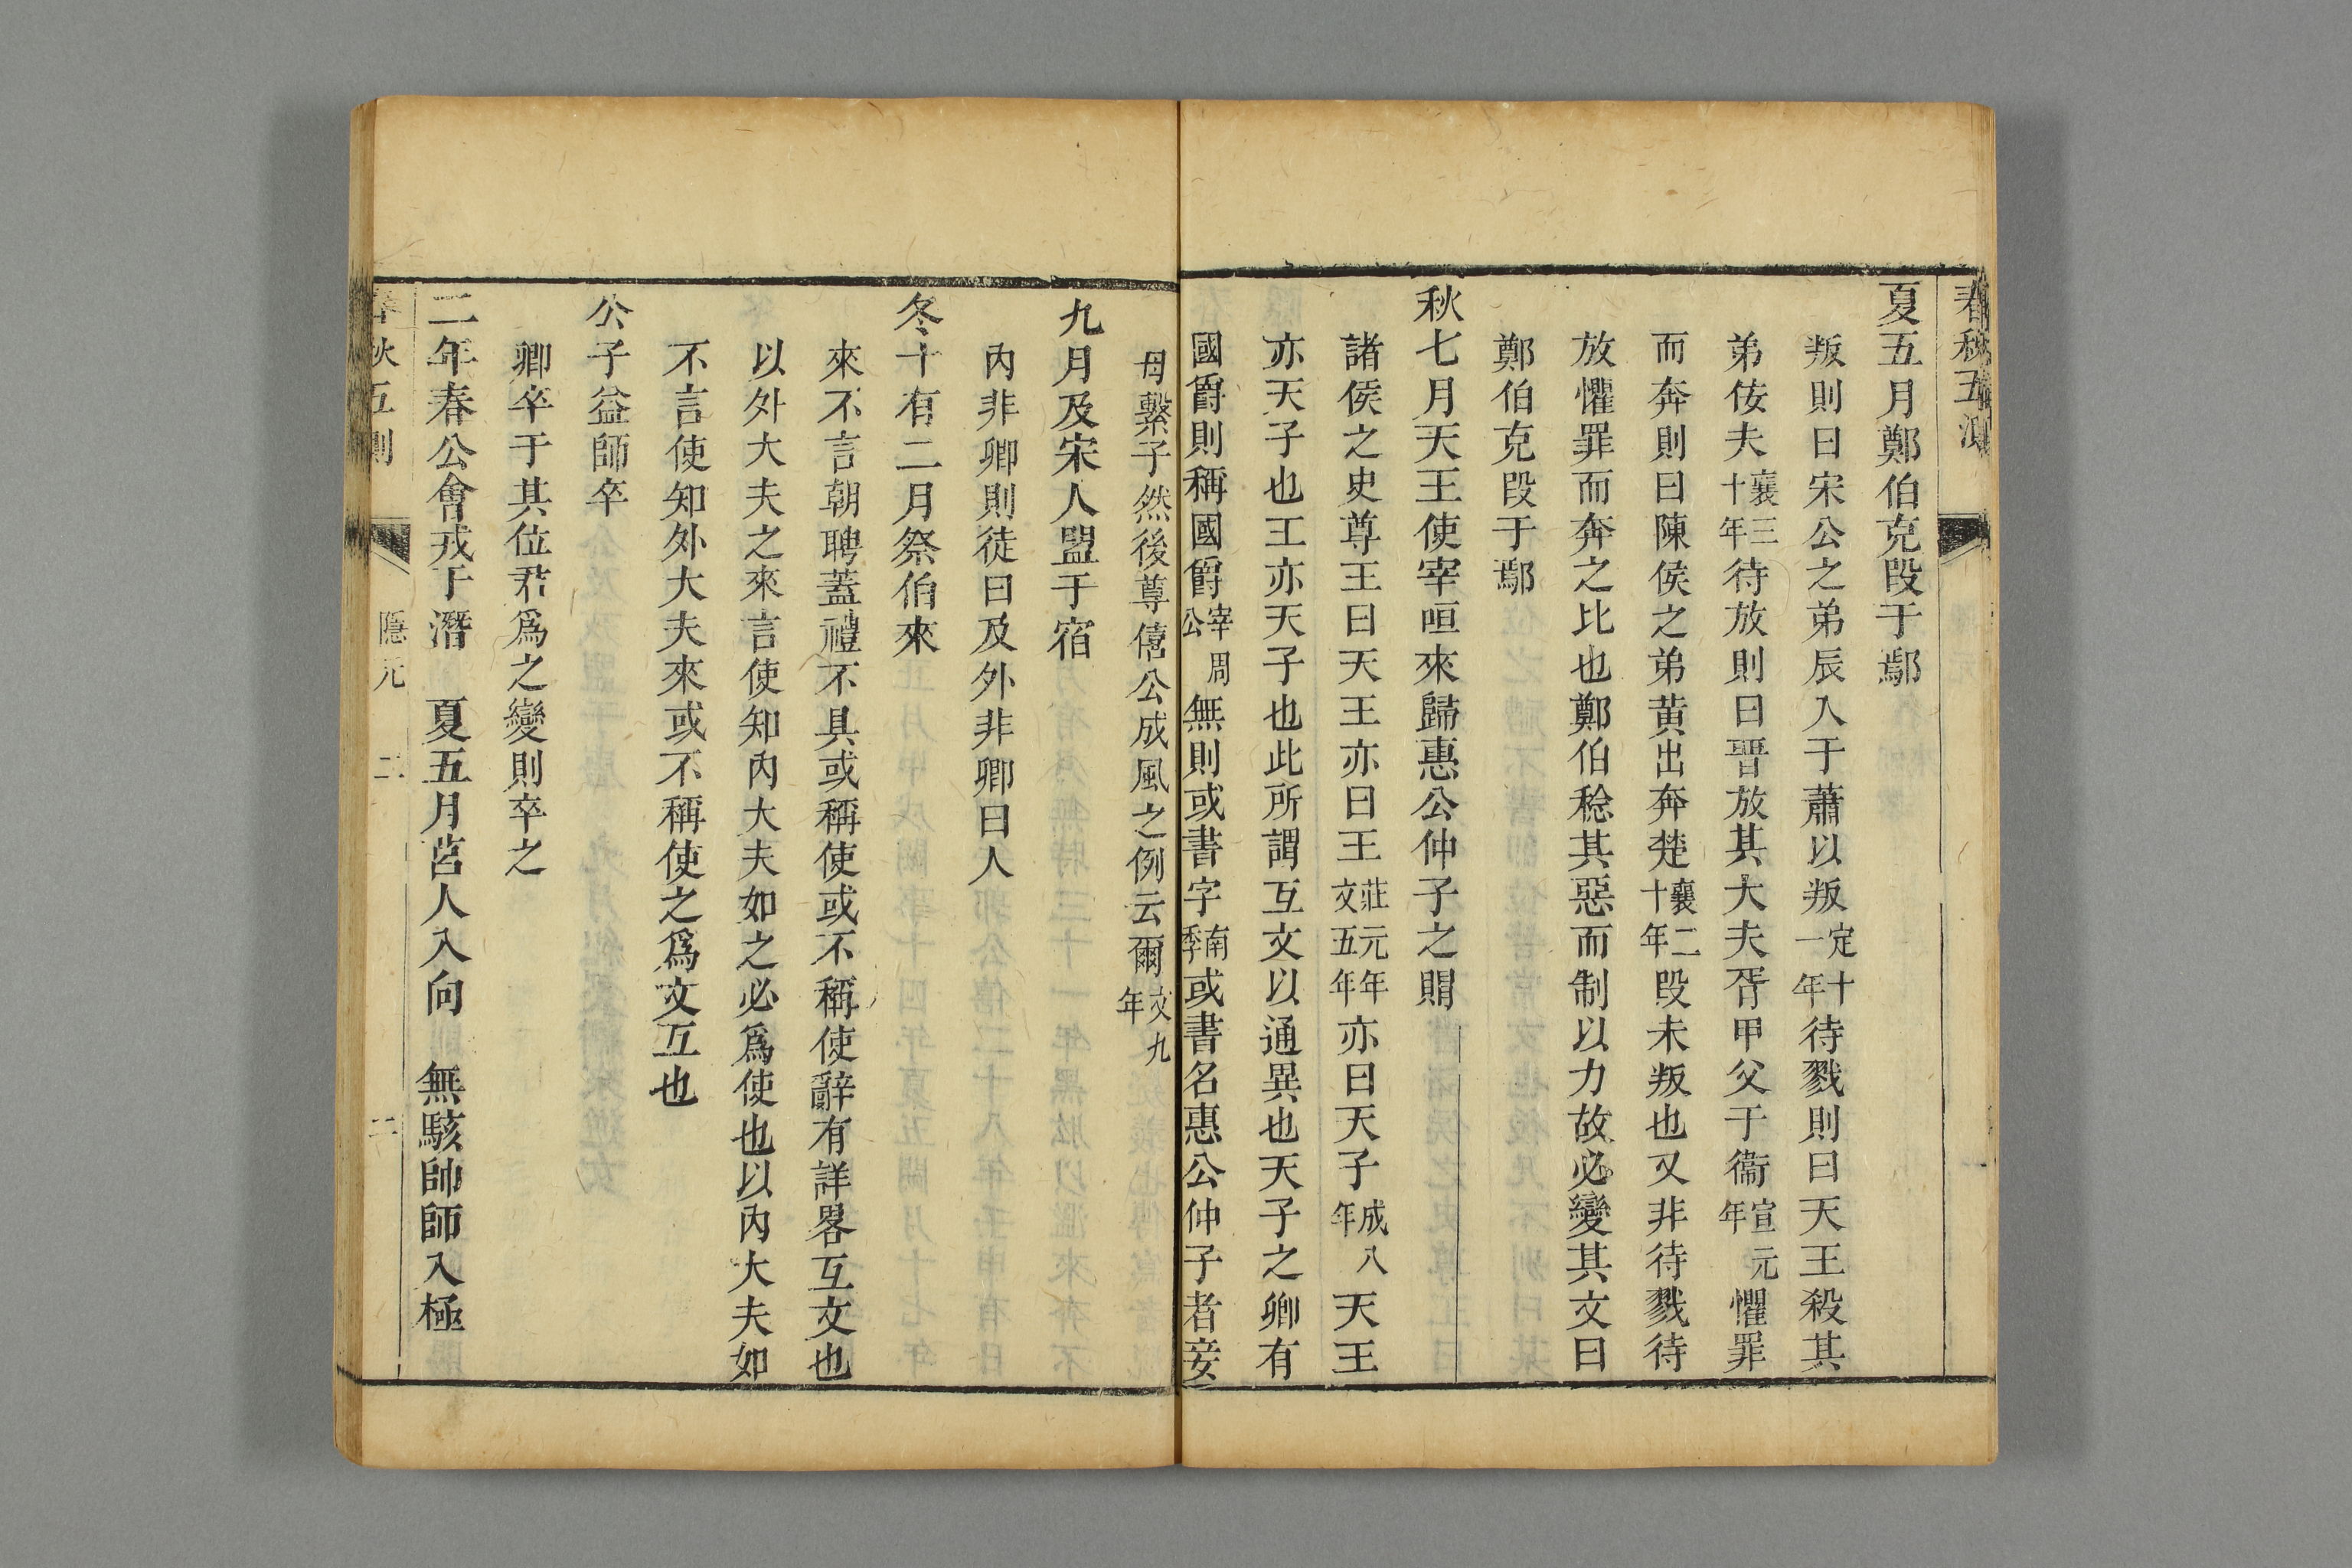 春秋五測
夏五月鄭伯克段于鄢
叛則曰宋公之弟辰入于蕭以叛定十一年待戮則曰天王殺其
弟佞夫襄三十年待放則曰晉放其大夫胥甲父于衞宣元年懼罪
而奔則曰陳侯之弟黄出奔楚襄二十年段未叛也又非待戮待
放懼罪而奔之比也鄭伯稔其惡而制以力故必變其文曰
鄭伯克段于鄢
秋七月天王使宰咺來歸惠公仲子之賵
諸侯之史尊王曰天王亦曰王莊元年文五年亦曰天子成八年天王
亦天子也王亦天子也此所謂互文以通異也天子之卿有
國爵則稱國爵宰周公無則或書字南季或書名惠公仲子者妾
母繫子然後尊僖公成風之例云爾文九年
九月及宋人盟于宿
內非卿則徒曰及外非卿曰人
冬十有二月祭伯來
來不言朝聘蓋禮不具或稱使或不稱使辭有詳畧互文也
以外大夫之來言使知內大夫如之必爲使也以內大夫如
不言使知外大夫來或不稱使之爲文互也
公子益師卒
卿卒于其位君爲之變則卒之
二年春公會戎于潛　夏五月莒人入向　無駭帥師入極
春秋五測　隱元　二　二